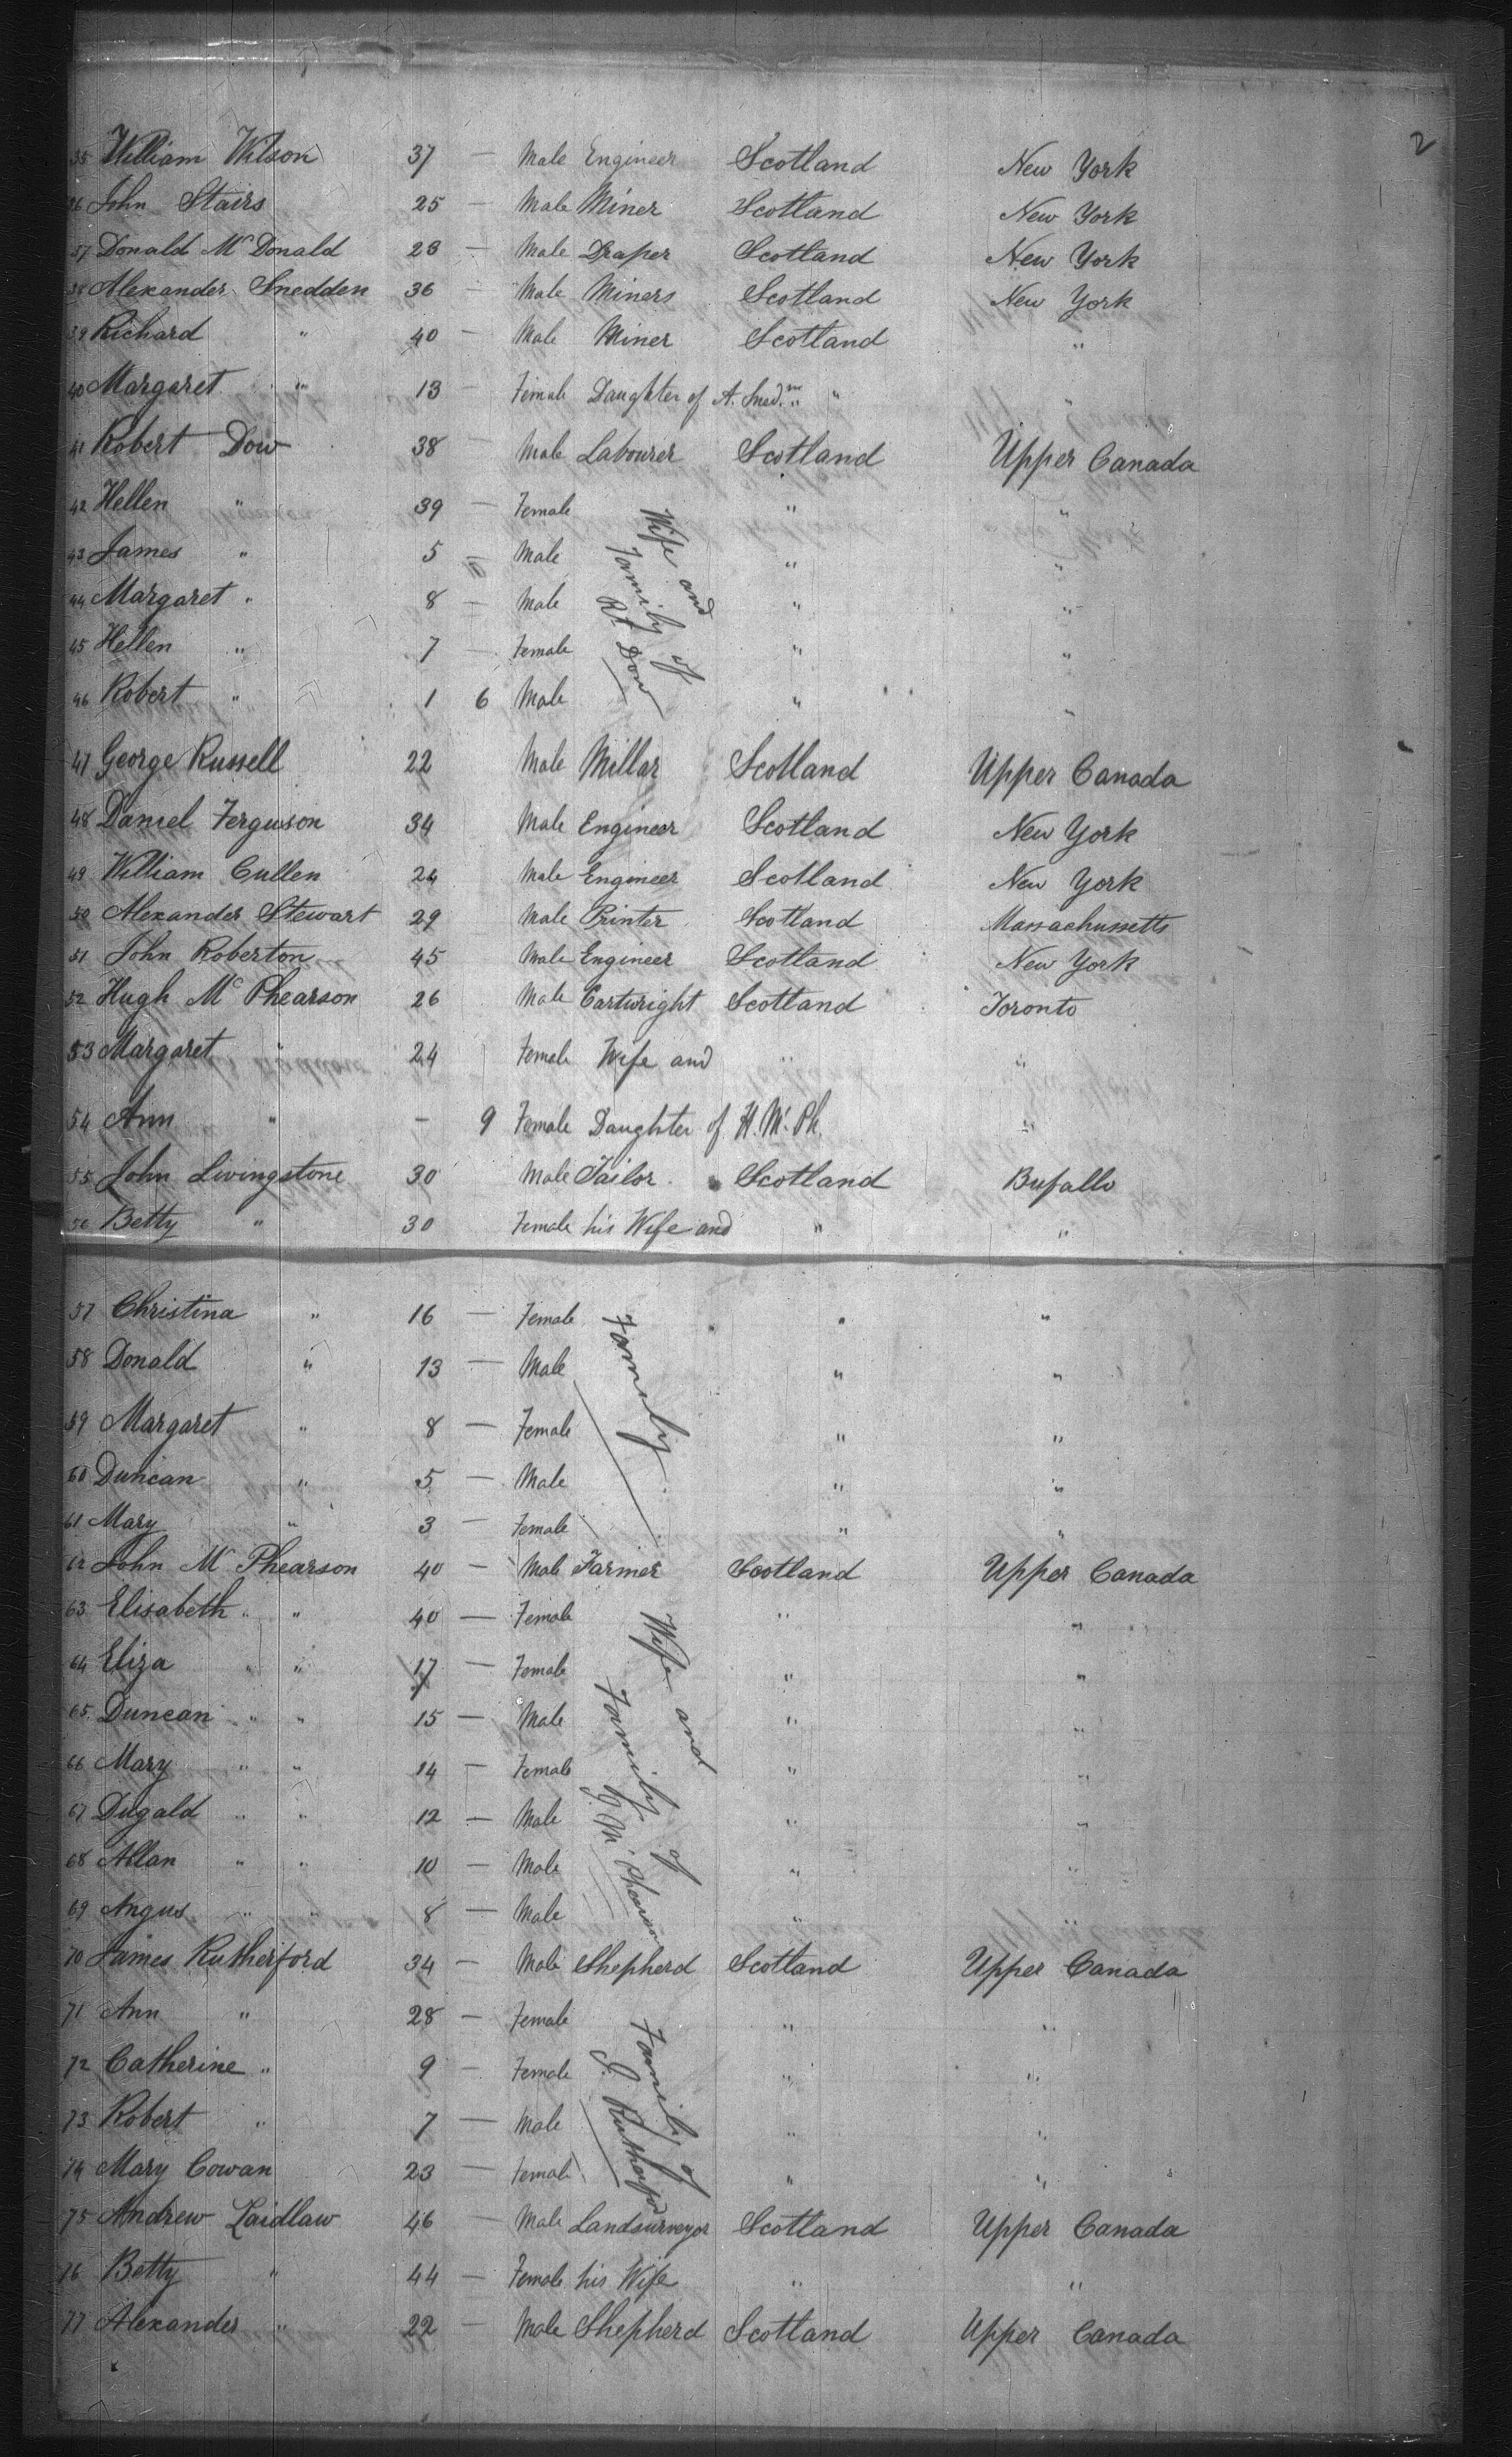 2
35 William Wilson 37 — Male Engineer Scotland New York
36 John Stairs 25 — Male Miner Scotland New York
37 Donald McDonald 28 — Male Draper Scotland New York
38 Alexander Snedden 36 — Male Miners Scotland New York
39 Richard " 40 — Male Miner Scotland "
40 Margaret " 13 — Female Daughter of A. Sned.n " "
41 Robert Dow 38 — Male Labourer Scotland Upper Canada
42 Hellen " 39 — Female Wife and " "
43 James " 5 — Male Family of " "
44 Margaret " 8 — Male Rt Dow " "
45 Hellen " 7 — Female " "
46 Robert " 1 6 Male " "
47 George Russell 22 Male Millar Scotland Upper Canada
48 Daniel Ferguson 34 Male Engineer Scotland New York
49 William Cullen 24 Male Engineer Scotland New York
50 Alexander Stewart 29 Male Printer Scotland Massachussetts
51 John Roberton 45 Male Engineer Scotland New York
52 Hugh McPhearson 26 Male Cartwright Scotland Toronto
53 Margaret " 24 Female Wife and " "
54 Ann " — 9 Female Daughter of H. Mc. Ph. "
55 John Livingstone 30 Male Tailor Scotland Bufallo
56 Betty " 30 Female his Wife and " "
57 Christina " 16 — Female Family " "
58 Donald " 13 — Male " "
59 Margaret " 8 — Female " "
60 Duncan " 5 — Male " "
61 Mary " 3 — Female " "
62 John Mc Phearson 40 — Male Farmer Scotland Upper Canada
63 Elisabeth " " 40 — Female Wife and " "
64 Eliza " " 17 — Female Family of " "
65 Duncan " " 15 — Male J. Mc Phearson " "
66 Mary " " 14 — Female " "
67 Dugald " " 12 — Male " "
68 Allan " " 10 — Male " "
69 Angus " " 8 — Male " "
70 James Rutherford 34 — Male Shepherd Scotland Upper Canada
71 Ann " 28 — Female Family of " "
72 Catherine " 9 — Female J. Rutherford " "
73 Robert " 7 — Male " "
74 Mary Cowan 23 — Female " "
75 Andrew Laidlaw 46 — Male Landsurveyor Scotland Upper Canada
76 Betty " 44 — Female his Wife " "
77 Alexander " 22 — Male Shepherd Scotland Upper Canada